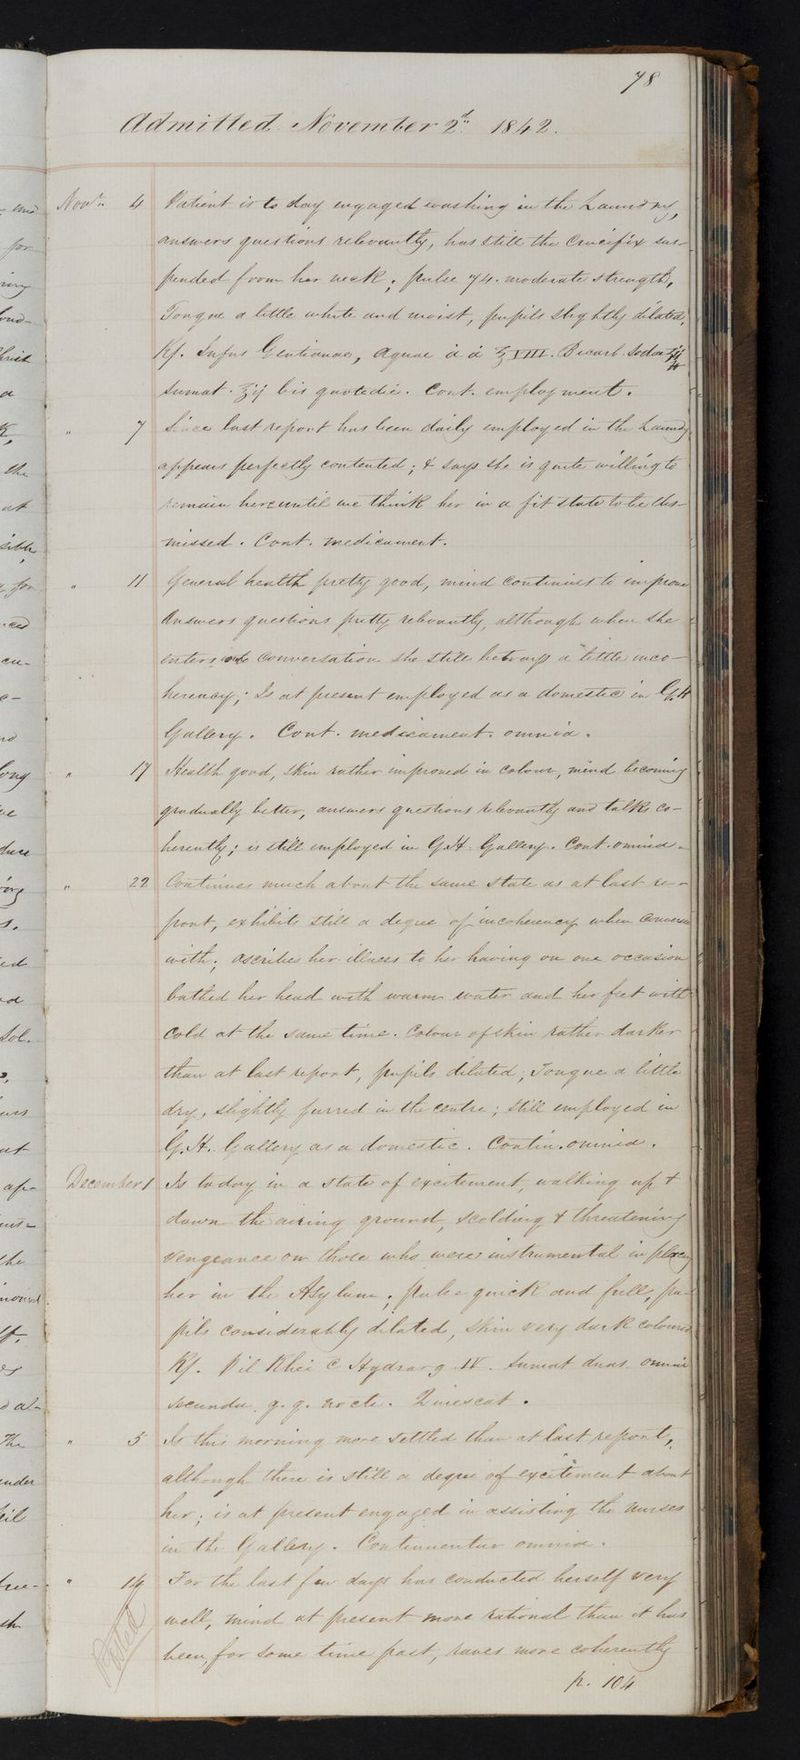 78
Admitted November 2d. 1842.
Novr. 4 Patient is to day engaged washing in the Laundry,
answers questions relevantly, has still the Crucifix sus-
pended from her neck; pulse 74. moderate strength,
Tongue a little white and moist, pupils slightly dilated,
Rp. Infus Gentianae, Aquae a a ℥ VIII. Bicarb Sodae
Sumat. ℥ij bis quotedie. Cont. employment.
" 7 Since last report has been daily employed in the Laundry
appears perfectly contented; & says she is quite willing to
remain here until we think her in a fit state to be dis-
missed. Cont. medicament.
" 11 General health pretty good, mind continues to improve
Answers questions pretty relevantly, although when she
enters into conversation she still betrays a little inco-
herency; Is at present employed as a domestic in G.H
Gallery. Cont. medicament. omnia.
" 17 Health good, skin rather improved in colour, mind becoming
gradually better, answers questions relevantly and talks co-
herently; is still employed in G.H. Gallery. Cont. omnia.
" 22 Continues much about the same state as at last re-
port, exhibits still a degree of incoherency when conversed
with; ascribes her illness to her having on one occasion
bathed her head with warm water and her feet with
cold at the same time. Colour of skin rather darker
than at last report, pupils dilated; Tongue a little
dry, slightly furred in the centre; still employed in
G.H. Gallery as a domestic. Contin. omnia.
December 1 Is today in a state of excitement, walking up &
down the airing ground, scolding & threatening
vengeance on those who were instrumental in placing
her in the Asylum; pulse quick and full, pu-
pils considerably dilated, skin very dark coloured
Rp. Pil Rhei C Hydrarg IV. Sumat duas omni
secunda q.q. nocte. Quiescat.
" 5 Is this morning more settled than at last report,
although there is still a degree of excitement about
her; is at present engaged in assisting the nurses
in the Gallery. Continuentur omnia.
" 14 For the last few days has conducted herself very
well, mind at present more rational than it has
been for some time past, raves more coherently
p. 104